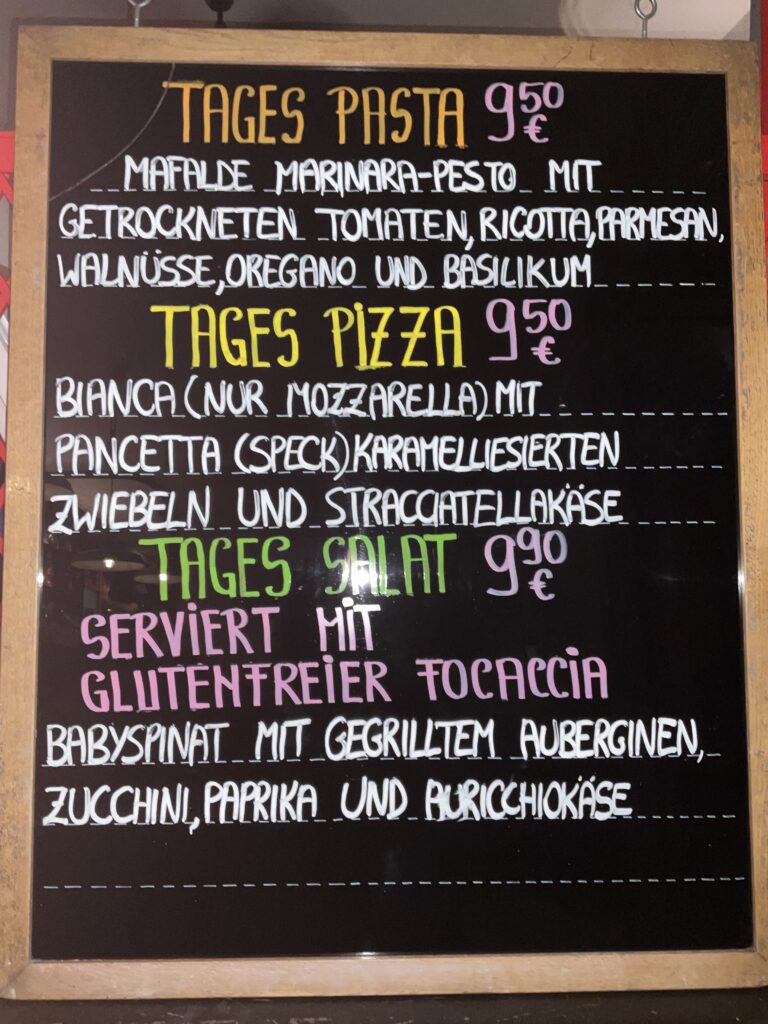 TAGES PASTA 950 €
MAFALDE MARINARA-PESTO MIT
GETROCKNETEN TOMATEN, RICOTTA, PARMESAN,
WALNÜSSE, OREGANO UND BASILIKUM
TAGES PIZZA 950 €
BIANCA (NUR MOZZARELLA) MIT
PANCETTA (SPECK) KARAMELLIESIERTEN
ZWIEBELN UND STRACCIATELLAKÄSE
TAGES SALAT 990 €
SERVIERT MIT
GLUTENFREIER FOCACCIA
BABYSPINAT MIT GEGRILLTEM AUBERGINEN,
ZUCCHINI, PAPRIKA UND AURICCHIOKÄSE